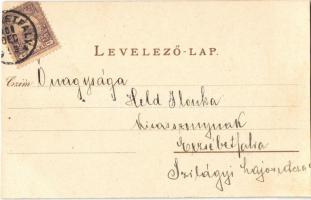 LEVELEZŐ-LAP.
Czím: Őnagysága
Held Ilonka
kisasszonynak
Erzsébetfalva
Szilágyi